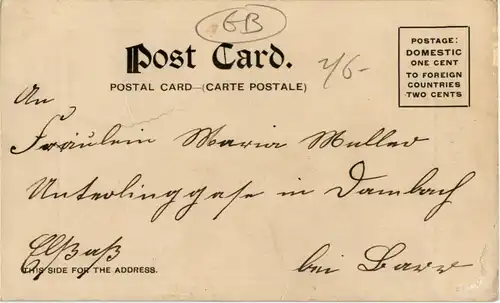 GB
Post Card.
2/6-
POSTAL CARD—(CARTE POSTALE)
POSTAGE:
DOMESTIC
ONE CENT
TO FOREIGN
COUNTRIES
TWO CENTS
An
Fräulein Maria Muller
Unterlinggase in Dambach
Elßaß
bei Barr
THIS SIDE FOR THE ADDRESS.